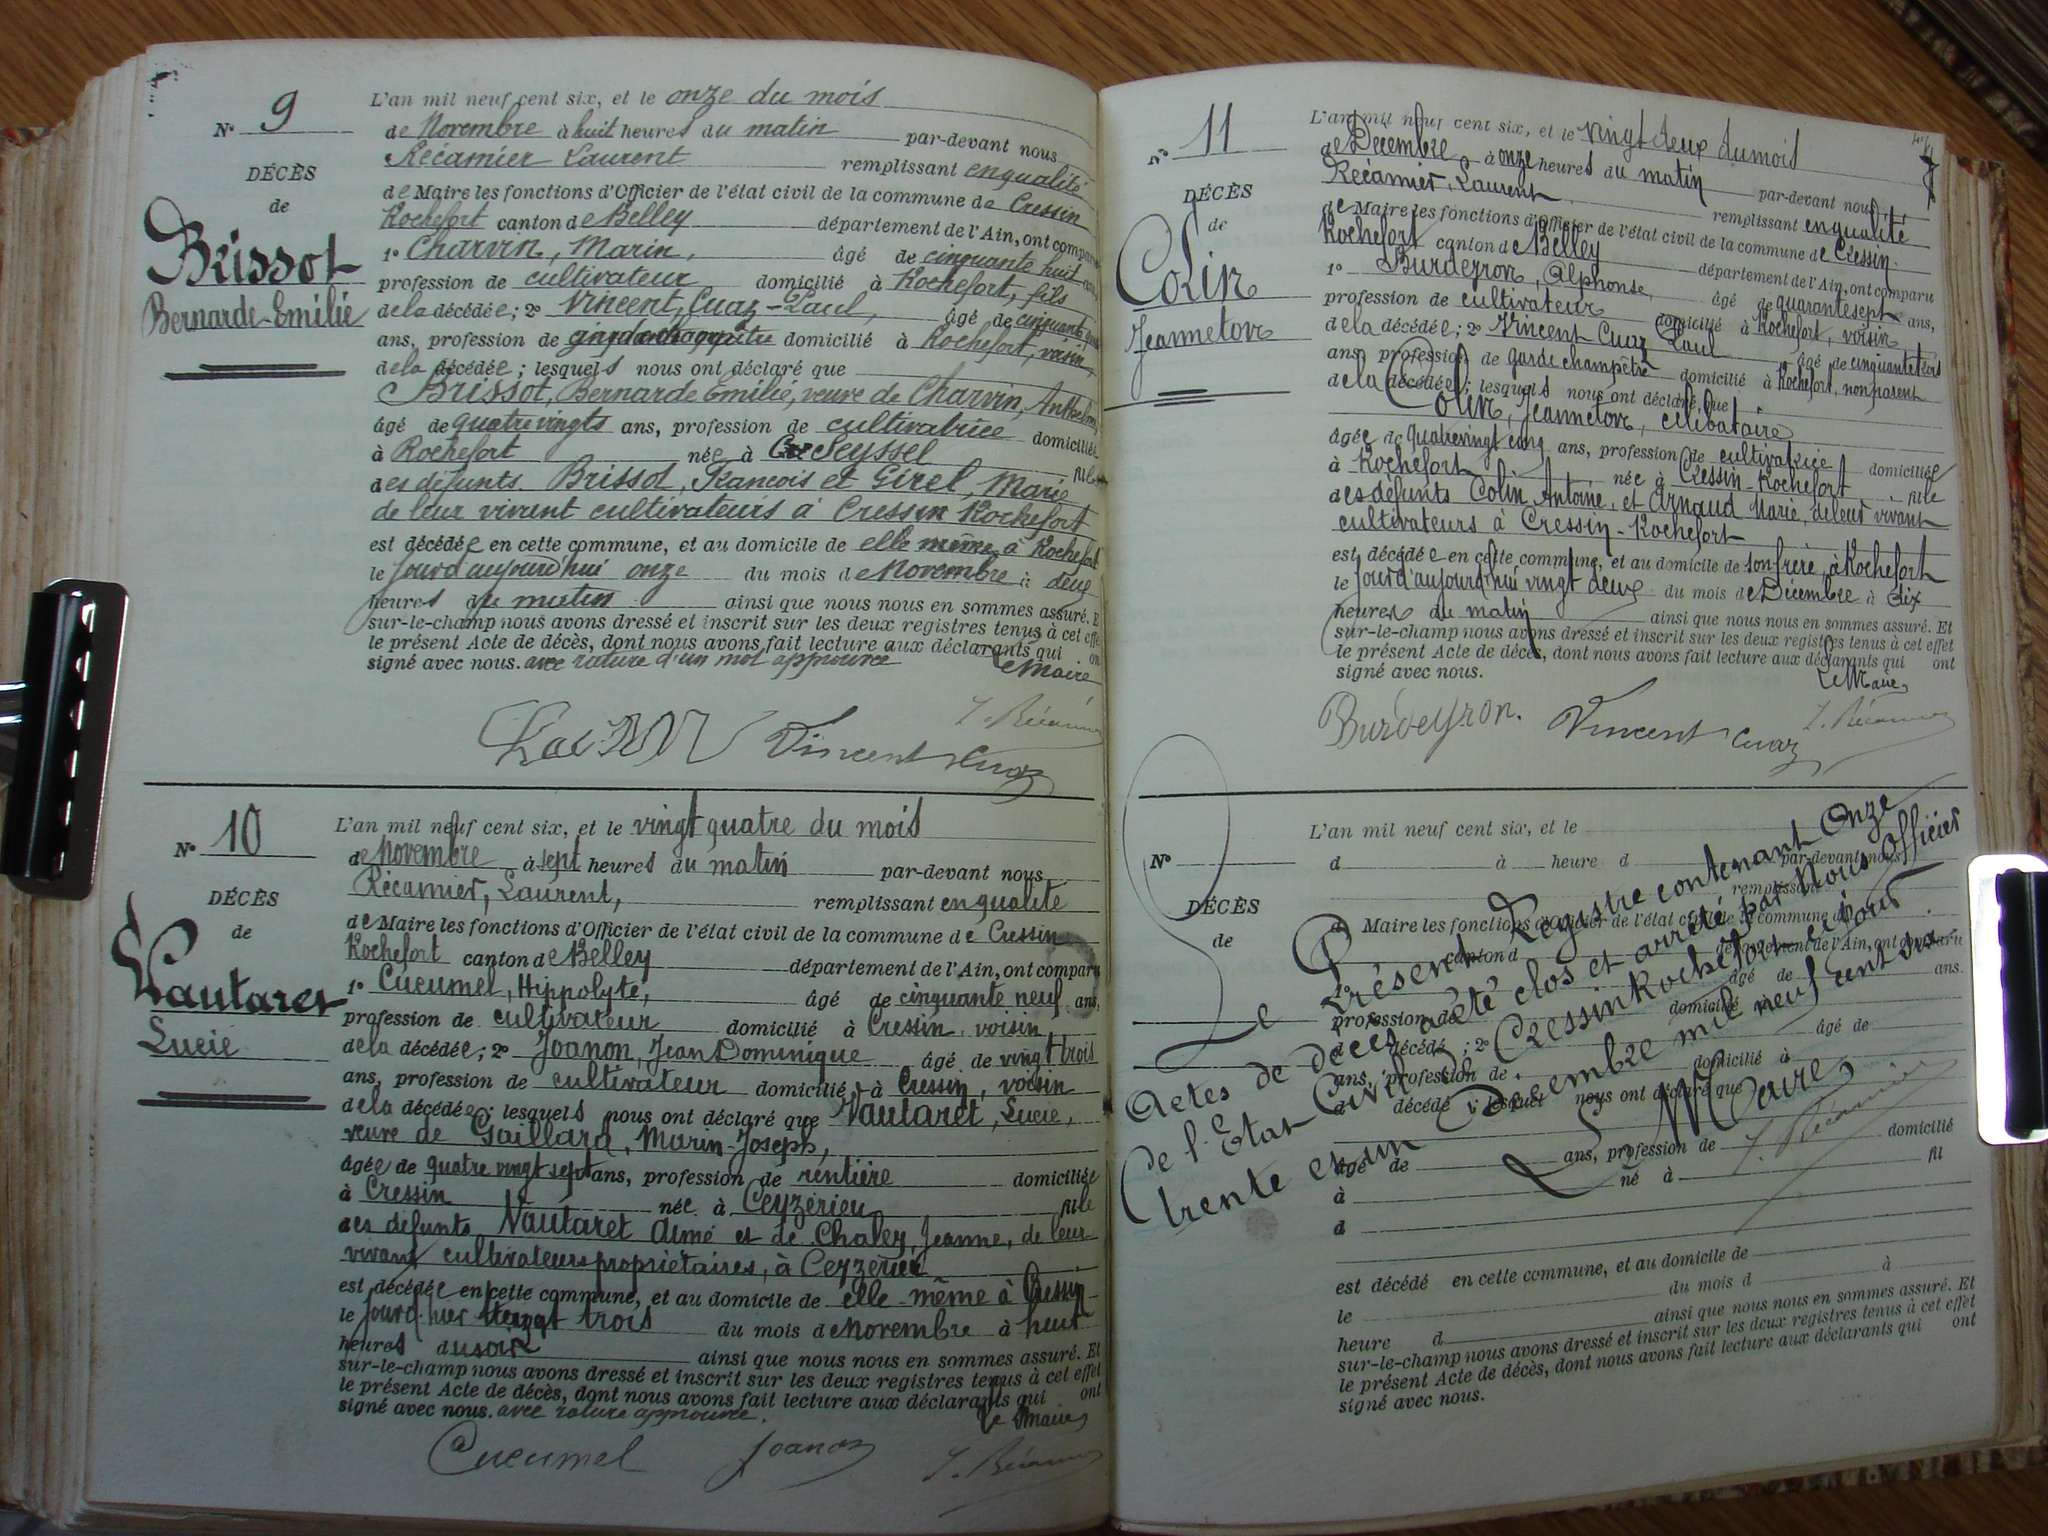 N° 9
DÉCÈS
de
Brissot
Bernarde-Emilié
L'an mil neuf cent six, et le onze du mois
de Novembre à huit heures du matin par-devant nous
Récamier Laurent remplissant en qualité
de Maire les fonctions d'Officier de l'état civil de la commune de Cressin
Rochefort canton de Belley département de l'Ain, ont comparu
1° Charvin, Marin, âgé de cinquante huit ans,
profession de cultivateur domicilié à Rochefort, fils
de la décédée; 2° Vincent, Cuaz-Paul, âgé de cinquante
ans, profession de domicilié à Rochefort, voisin,
de la décédée; lesquels nous ont déclaré que
Brissot, Bernarde Emilié, veuve de Charvin, Anthelme
âgé de quatre vingts ans, profession de cultivatrice domiciliée
à Rochefort née à Seyssel fille
des défunts Brissot, Francois et Girel, Marie
de leur vivant cultivateurs à Cressin Rochefort
est décédée en cette commune, et au domicile de elle même à Rochefort
le jourd'aujourd'hui onze du mois de Novembre à deux
heures du matin ainsi que nous nous en sommes assuré. Et
sur-le-champ nous avons dressé et inscrit sur les deux registres tenus à cet effet
le présent Acte de décès, dont nous avons fait lecture aux déclarants qui ont
signé avec nous. avec rature d'un mot approuvée Le Maire
Vincent Cuaz L. Récamier
N° 10
DÉCÈS
de
Vautaret
Lucie
L'an mil neuf cent six, et le vingt quatre du mois
de Novembre à sept heures du matin par-devant nous
Récamier, Laurent, remplissant en qualité
de Maire les fonctions d'Officier de l'état civil de la commune de Cressin
Rochefort canton de Belley département de l'Ain, ont comparu
1° Cucumel, Hippolyte, âgé de cinquante neuf ans,
profession de cultivateur domicilié à Cressin, voisin
de la décédée; 2° Joanon, Jean Dominique âgé de vingt trois
ans, profession de cultivateur domicilié à Cressin, voisin
de la décédée; lesquels nous ont déclaré que Vautaret, Lucie,
veuve de Gaillard, Marin-Joseph,
âgée de quatre vingt sept ans, profession de rentière domiciliée
à Cressin née à Ceyzérieu fille
des défunts Vautaret Aimé et de Chaley, Jeanne, de leur
vivant cultivateurs propriétaires, à Ceyzérieu
est décédée en cette commune, et au domicile de elle-même à Cressin
le jourd'hier vingt trois du mois de Novembre à huit
heures du soir ainsi que nous nous en sommes assuré. Et
sur-le-champ nous avons dressé et inscrit sur les deux registres tenus à cet effet
le présent Acte de décès, dont nous avons fait lecture aux déclarants qui ont
signé avec nous. avec rature approuvée. Le Maire,
Cucumel Joanon L. Récamier
N° 11
DÉCÈS
de
Colin
Jeanneton
L'an mil neuf cent six, et le vingt deux du mois
de Décembre à onze heures du matin par-devant nous
Récamier, Laurent remplissant en qualité
de Maire les fonctions d'Officier de l'état civil de la commune de Cressin
Rochefort canton de Belley département de l'Ain, ont comparu
1° Burdeyron, Alphonse, âgé de quarante sept ans,
profession de cultivateur domicilié à Rochefort, voisin
de la décédée; 2° Vincent Cuaz Paul âgé de cinquante trois
ans, profession de garde champêtre domicilié à Rochefort, non parent
de la décédée; lesquels nous ont déclaré que
Colin, Jeanneton, célibataire
âgée de quatre vingt cinq ans, profession de cultivatrice domiciliée
à Rochefort née à Cressin-Rochefort fille
des défunts Colin Antoine, et Arnaud Marie, de leur vivant
cultivateurs à Cressin-Rochefort
est décédée en cette commune, et au domicile de son frère, à Rochefort
le jourd'aujourd'hui vingt deux du mois de Décembre à dix
heures du matin ainsi que nous nous en sommes assuré. Et
sur-le-champ nous avons dressé et inscrit sur les deux registres tenus à cet effet
le présent Acte de décès, dont nous avons fait lecture aux déclarants qui ont
signé avec nous. Le Maire,
Burdeyron. Vincent Cuaz L. Récamier
N°
DÉCÈS
de
L'an mil neuf cent six, et le
d à heure d par-devant nous
remplissant
d Maire les fonctions d'Officier de l'état civil de la commune d
canton d département de l'Ain, ont comparu
1° âgé de ans.
profession de domicilié
d décédé ; 2° âgé de
ans, profession de domicilié à
d décédé ; lesquels nous ont déclaré que
âgé de ans, profession de domicilié
à né à fil
d
est décédé en cette commune, et au domicile de
le du mois d à
heure d ainsi que nous nous en sommes assuré. Et
sur-le-champ nous avons dressé et inscrit sur les deux registres tenus à cet effet
le présent Acte de décès, dont nous avons fait lecture aux déclarants qui ont
signé avec nous.
Le Présent Registre contenant Onze
Actes de décès a été clos et arrêté par Nous Officier
de l'Etat Civil de Cressin Rochefort ce jour
trente et un Décembre mil neuf cent six.
Le Maire,
L. Récamier